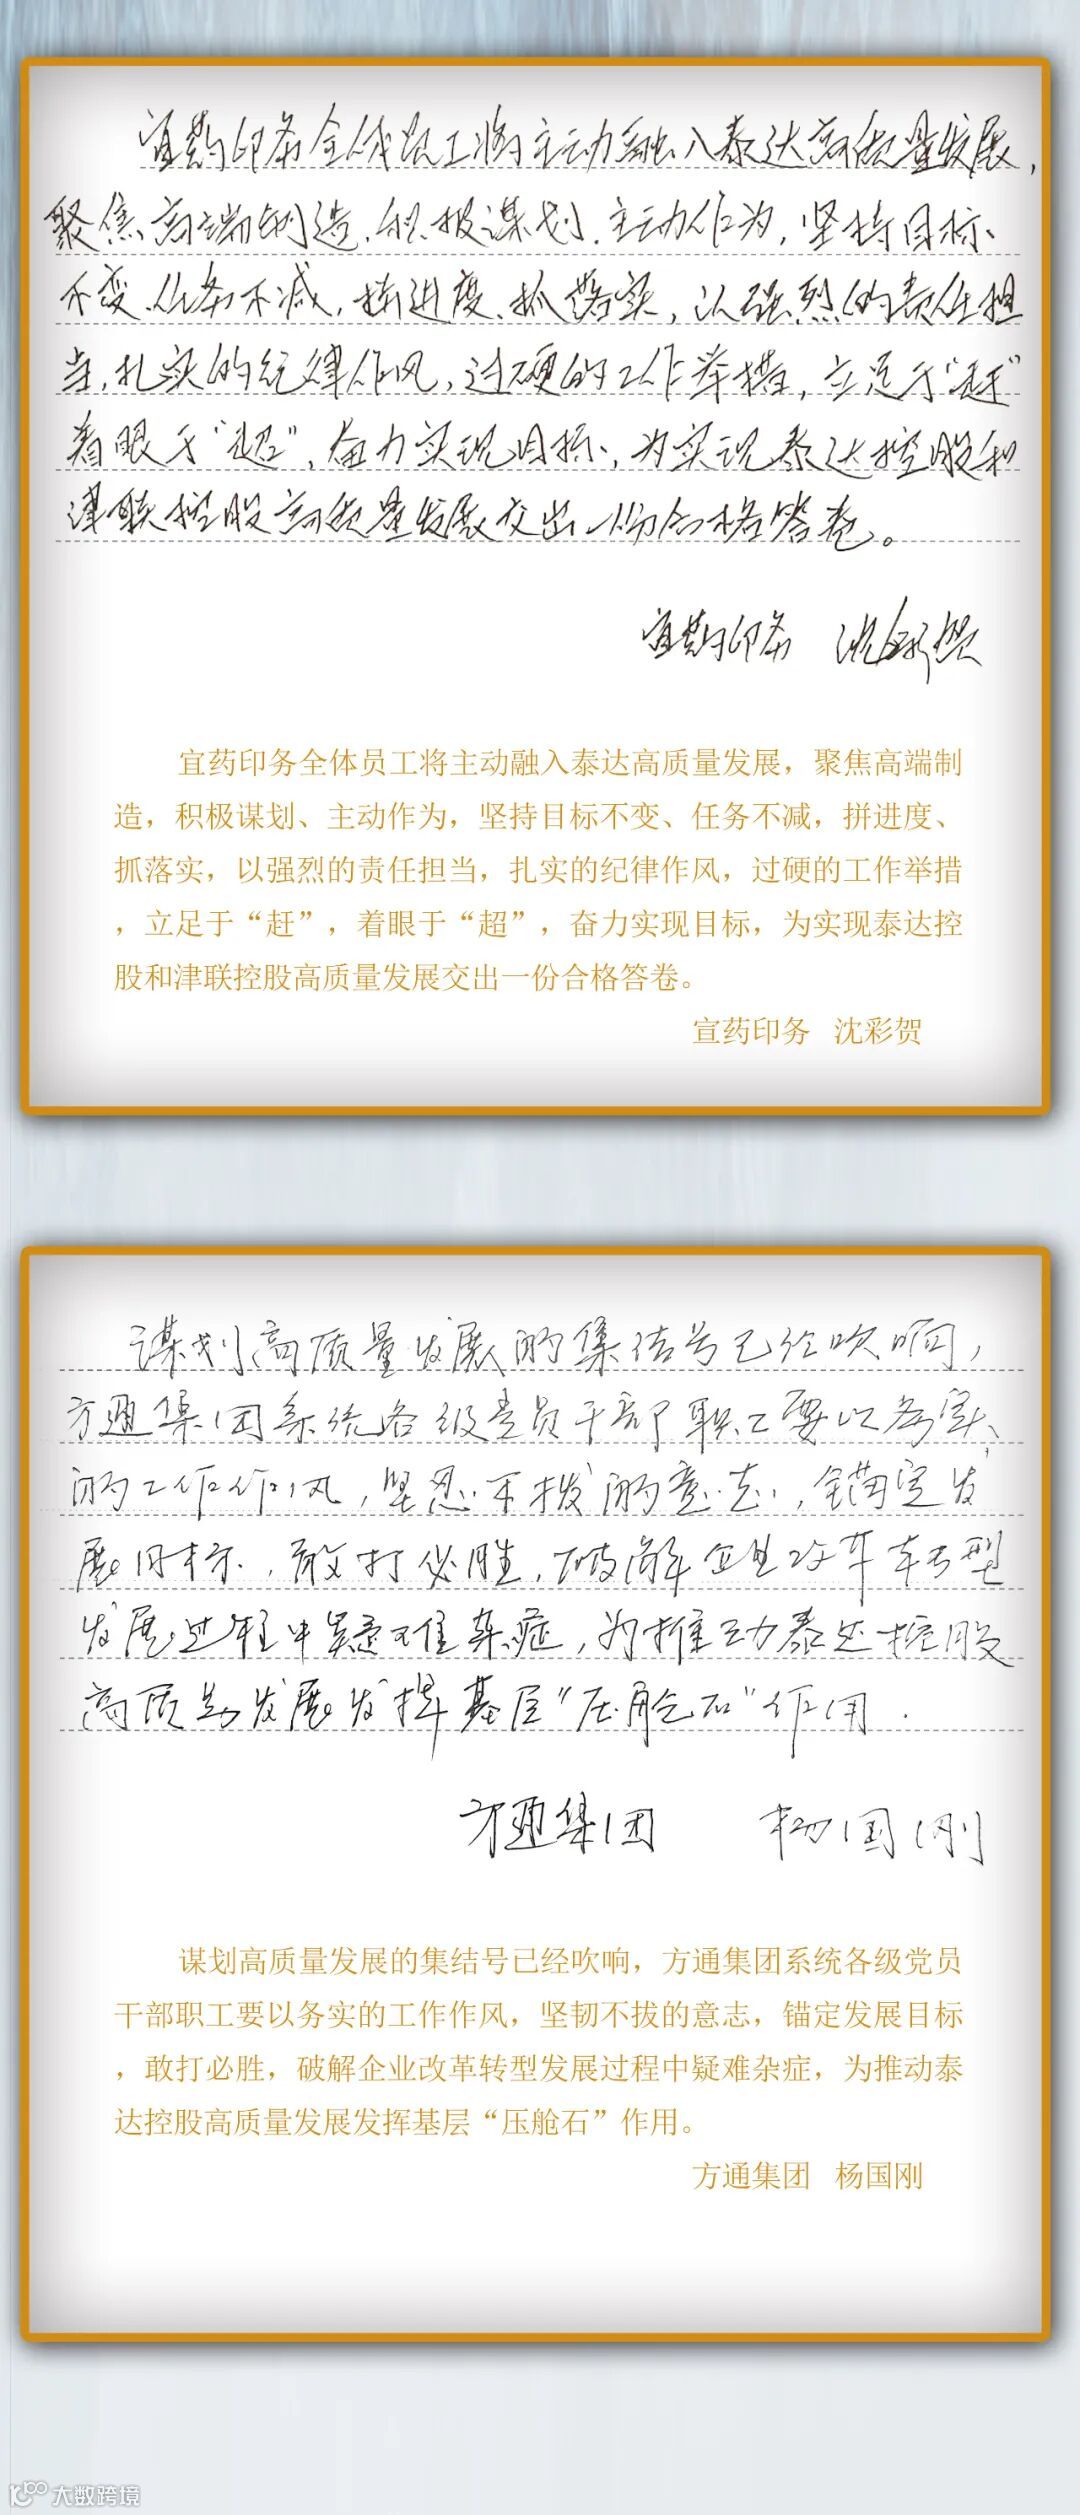 宜药印务全体员工将主动融入泰达高质量发展,
聚焦高端制造、积极谋划、主动作为,坚持目标
不变、任务不减,拼进度、抓落实,以强烈的责任担
当,扎实的纪律作风,过硬的工作举措,立足于“赶”
着眼于“超”,奋力实现目标,为实现泰达控股和
津联控股高质量发展交出一份合格答卷。
宜药印务 沈彩贺
宜药印务全体员工将主动融入泰达高质量发展，聚焦高端制
造，积极谋划、主动作为，坚持目标不变、任务不减，拼进度、
抓落实，以强烈的责任担当，扎实的纪律作风，过硬的工作举措
，立足于“赶”，着眼于“超”，奋力实现目标，为实现泰达控
股和津联控股高质量发展交出一份合格答卷。
宜药印务 沈彩贺
谋划高质量发展的集结号已经吹响,
方通集团系统各级党员干部职工要以务实
的工作作风,坚忍不拔的意志,锚定发
展目标,敢打必胜,破解企业改革转型
发展过程中疑难杂症,为推动泰达控股
高质量发展发挥基层“压舱石”作用.
方通集团 杨国刚
谋划高质量发展的集结号已经吹响，方通集团系统各级党员
干部职工要以务实的工作作风，坚韧不拔的意志，锚定发展目标
，敢打必胜，破解企业改革转型发展过程中疑难杂症，为推动泰
达控股高质量发展发挥基层“压舱石”作用。
方通集团 杨国刚
大数跨境